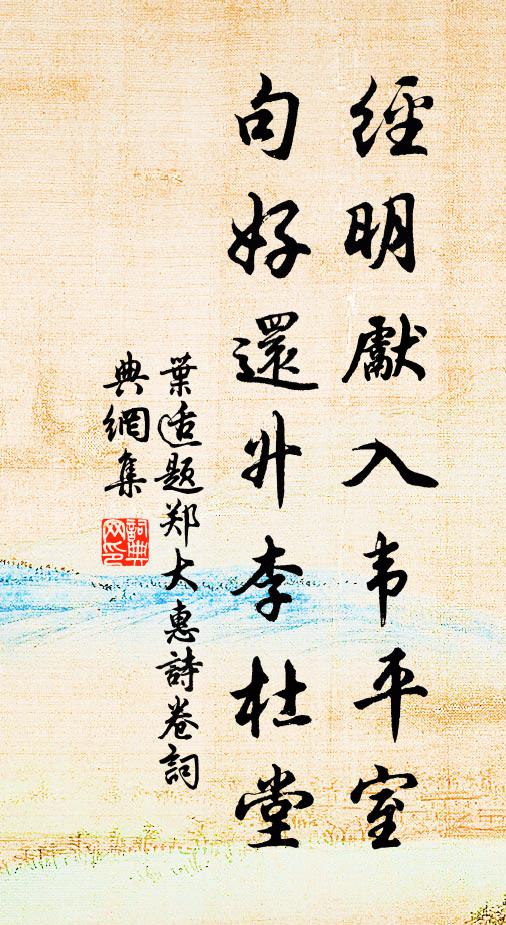 經明獻入韦平室
句好還升李杜堂
葉适题郑大惠詩卷詞
典網集
詞典网印